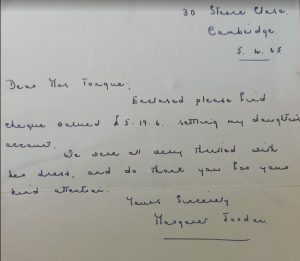 30 Stone Close,
Cambridge.
5. 4. 65.
Dear Mrs Tongue,
Enclosed please find
cheque valued £5-19-6, settling my daughter's
account.
We were all very thrilled with
her dress, and do thank you for your
kind attention.
Yours Sincerely
Margaret